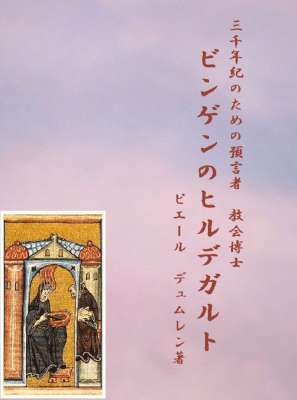 三千年紀のための預言者　教会博士
ビンゲンのヒルデガルト
ピエール　デュムレン著